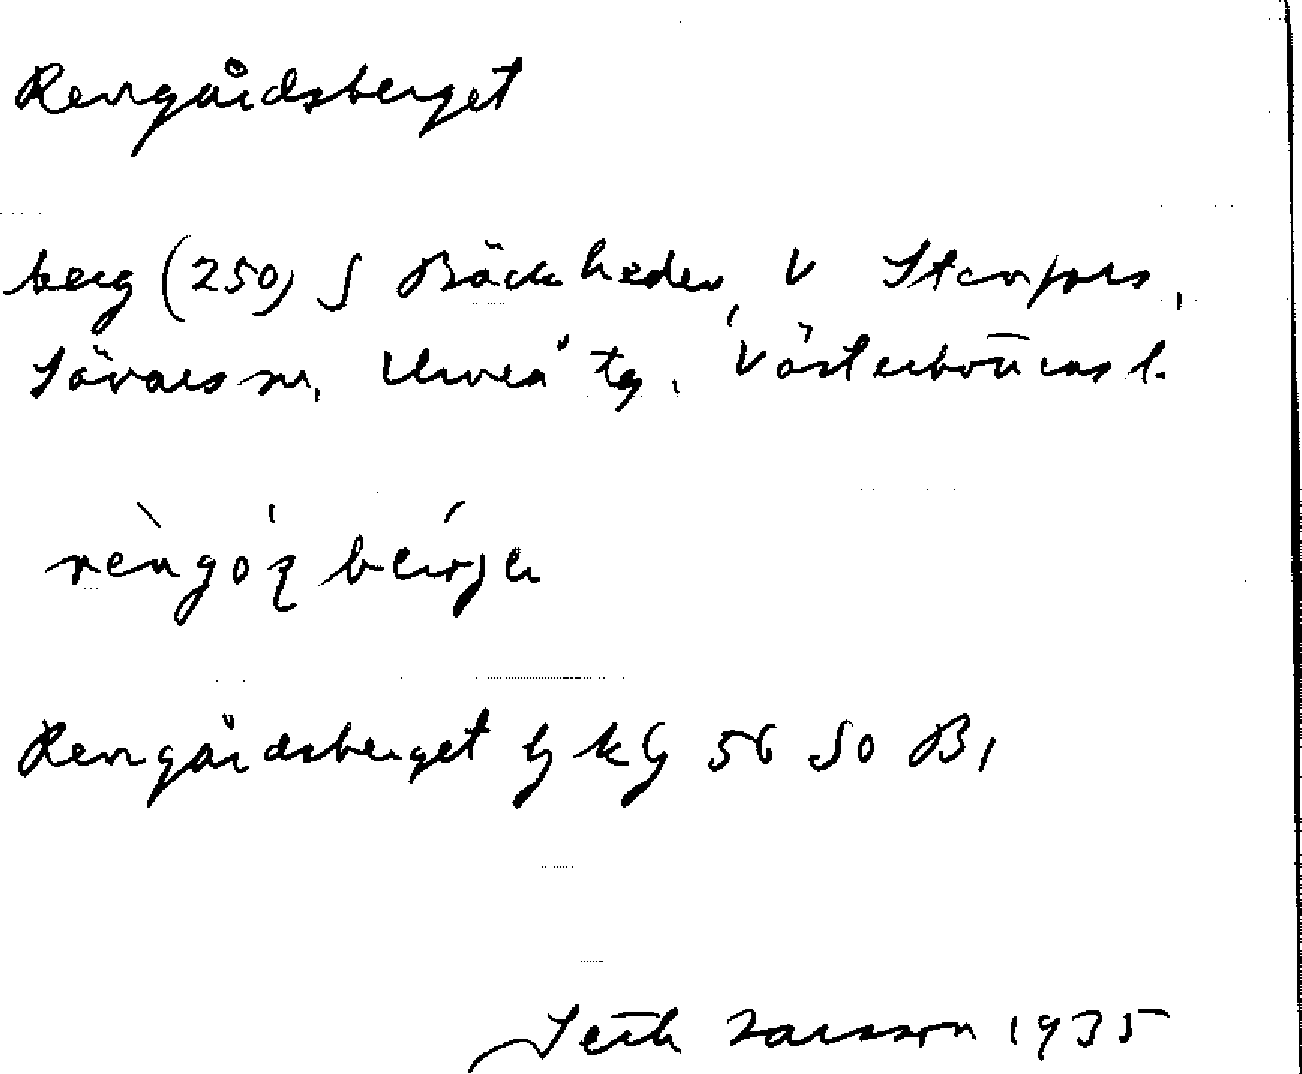 Rengårdsberget
berg (250) S Bäckheden, V Stenfors,
Sävars sn, Umeå tg, Västerbottens l.
rèngóʐ bérje
Rengårdsberget Gkg 56 SO B1
Seth Larsson 1935